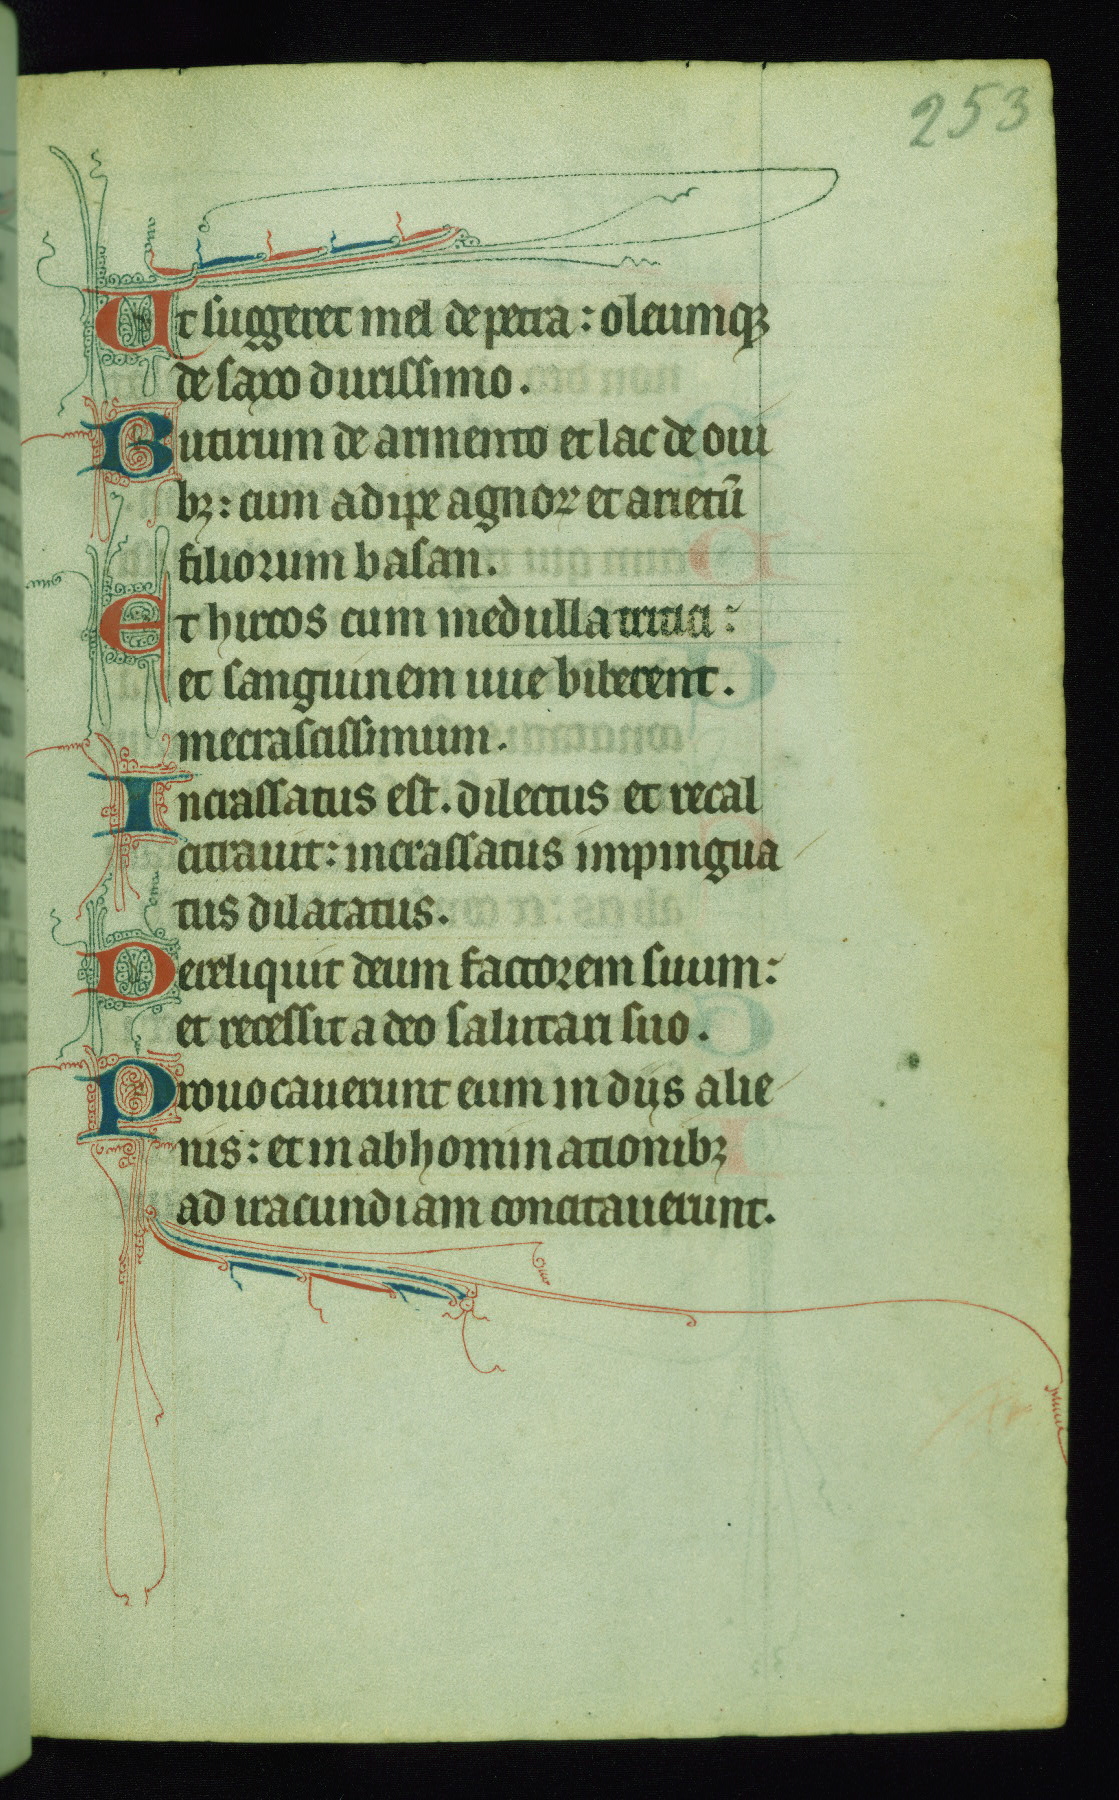 253
Ut suggeret mel de petra : oleumqꝫ
de saxo durissimo .
Butirum de armento et lac de oui
bꝫ : cum adipe agnoꝝ et arietū
filiorum basan .
Et hircos cum medulla tritici :
et sanguinem uue biberent .
mecrascissimum .
Incrassatus est . dilectus et recal
citrauit : incrassatus impingua
tus dilatatus .
Dereliquit deum factorem suum :
et recessit a deo salutari suo .
Prouocauerunt eum in diis alie
nis : et in abhominationibꝫ
ad iracundiam concitauerunt .